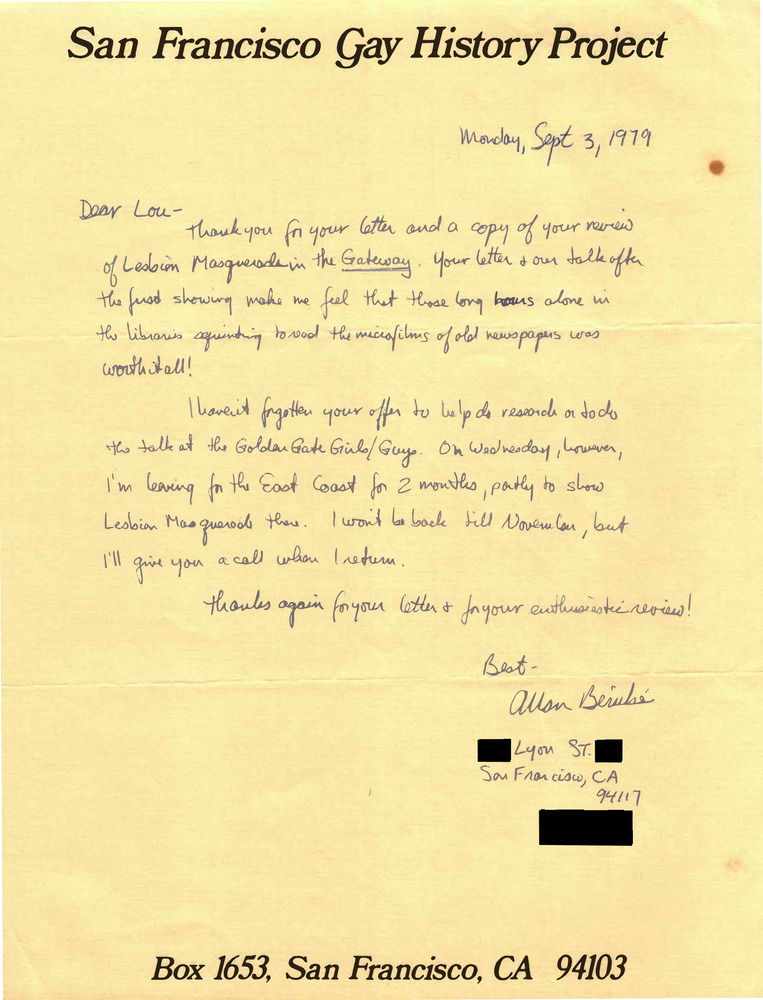 San Francisco Gay History Project
Monday, Sept 3, 1979
Dear Lou-
Thank you for your letter and a copy of your review
of Lesbian Masquerade in the Gateway. Your letter & our talk after
the first showing make me feel that those long hours alone in
the libraries squinting to read the microfilms of old newspapers was
worth it all!
I haven't forgotten your offer to help do research or to do
the talk at the Golden Gate Girls/Guys. On Wednesday, however,
I'm leaving for the East Coast for 2 months, partly to show
Lesbian Masquerade there. I won't be back till November, but
I'll give you a call when I return.
Thanks again for your letter & for your enthusiastic review!
Best-
Allan Bérubé
Lyon St.
San Francisco, CA
94117
Box 1653, San Francisco, CA 94103